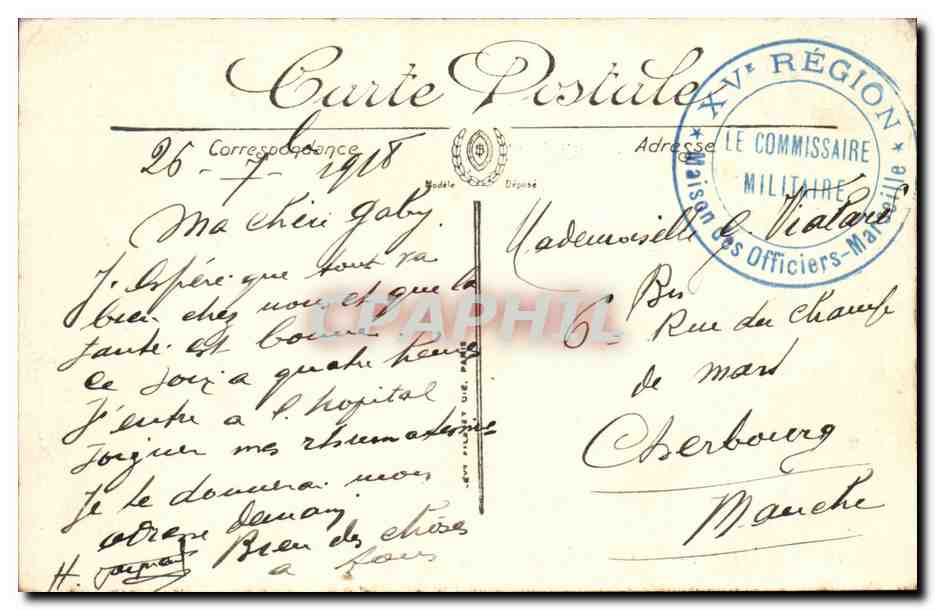 Carte Postale
Correspondance
Adresse
Modèle Déposé
XVE RÉGION
LE COMMISSAIRE
MILITAIRE
★ Maison des Officiers-Marseille ★
26 - 7 - 1918
Ma chéri Gaby
J'espère que tout va
bien chez nous et que la
santé est bonne
ce soir a quatre heures
J'entre a l'hopital
soigner mes rhumatismes
Je te donnerai mon
adresse demain
Bien des choses
a tous
H.
Mademoiselle G.
6 Bis
Rue du Champ
de mars
Cherbourg
Manche
LÉVY FILS ET CIE, PARIS
CPAPHIL